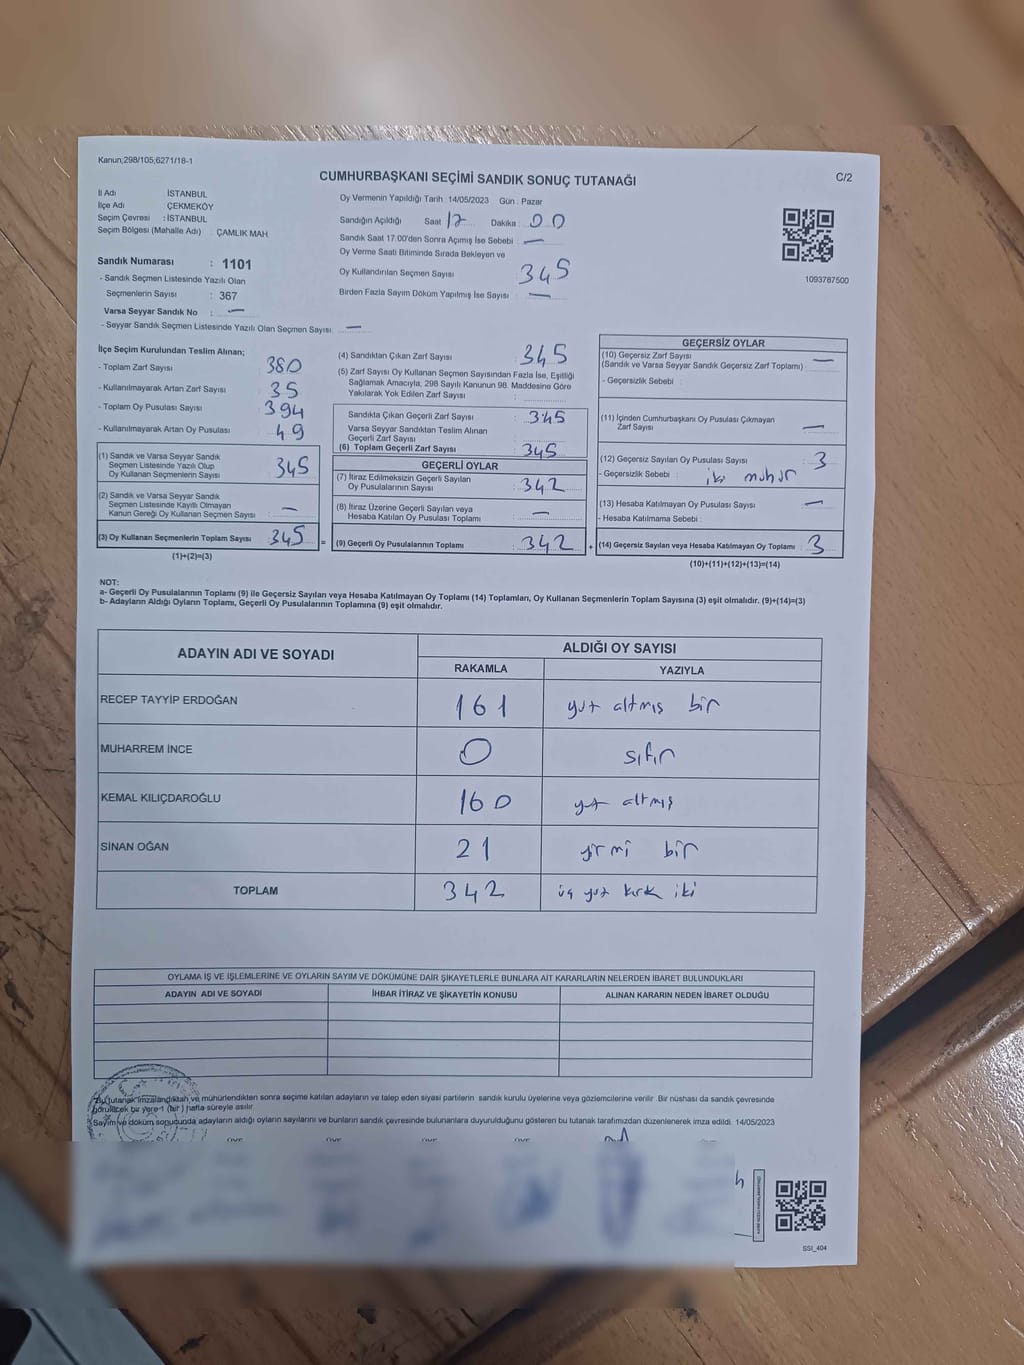 Kanun;298/105;6271/18-1
C/2
CUMHURBAŞKANI SEÇİMİ SANDIK SONUÇ TUTANAĞI
İl Adı İSTANBUL
İlçe Adı : ÇEKMEKÖY
Seçim Çevresi : İSTANBUL
Seçim Bölgesi (Mahalle Adı) : ÇAMLIK MAH.
Sandık Numarası : 1101
- Sandık Seçmen Listesinde Yazılı Olan
Seçmenlerin Sayısı : 367
Varsa Seyyar Sandık No : —
- Seyyar Sandık Seçmen Listesinde Yazılı Olan Seçmen Sayısı: —
Oy Vermenin Yapıldığı Tarih : 14/05/2023 Gün : Pazar
Sandığın Açıldığı Saat 17 Dakika : 00
Sandık Saat 17.00'den Sonra Açılmış İse Sebebi : —
Oy Verme Saati Bitiminde Sırada Bekleyen ve
Oy Kullandırılan Seçmen Sayısı 345
Birden Fazla Sayım Döküm Yapılmış İse Sayısı : —
1093787500
İlçe Seçim Kurulundan Teslim Alınan;
- Toplam Zarf Sayısı : 380
- Kullanılmayarak Artan Zarf Sayısı : 35
- Toplam Oy Pusulası Sayısı : 394
- Kullanılmayarak Artan Oy Pusulası : 49
(1) Sandık ve Varsa Seyyar Sandık
Seçmen Listesinde Yazılı Olup
Oy Kullanan Seçmenlerin Sayısı : 345
(2) Sandık ve Varsa Seyyar Sandık
Seçmen Listesinde Kayıtlı Olmayan
Kanun Gereği Oy Kullanan Seçmen Sayısı : —
(3) Oy Kullanan Seçmenlerin Toplam Sayısı : 345
(1)+(2)=(3)
(4) Sandıktan Çıkan Zarf Sayısı : 345
(5) Zarf Sayısı Oy Kullanan Seçmen Sayısından Fazla İse, Eşitliği
Sağlamak Amacıyla, 298 Sayılı Kanunun 98. Maddesine Göre
Yakılarak Yok Edilen Zarf Sayısı :
Sandıkta Çıkan Geçerli Zarf Sayısı : 345
Varsa Seyyar Sandıktan Teslim Alınan
Geçerli Zarf Sayısı :
(6) Toplam Geçerli Zarf Sayısı : 345
GEÇERLİ OYLAR
(7) İtiraz Edilmeksizin Geçerli Sayılan
Oy Pusulalarının Sayısı : 342
(8) İtiraz Üzerine Geçerli Sayılan veya
Hesaba Katılan Oy Pusulası Toplamı : —
= (9) Geçerli Oy Pusulalarının Toplamı : 342
GEÇERSİZ OYLAR
(10) Geçersiz Zarf Sayısı : —
(Sandık ve Varsa Seyyar Sandık Geçersiz Zarf Toplamı)
- Geçersizlik Sebebi :
(11) İçinden Cumhurbaşkanı Oy Pusulası Çıkmayan
Zarf Sayısı : —
(12) Geçersiz Sayılan Oy Pusulası Sayısı : 3
- Geçersizlik Sebebi : iki mühür
(13) Hesaba Katılmayan Oy Pusulası Sayısı : —
- Hesaba Katılmama Sebebi :
+ (14) Geçersiz Sayılan veya Hesaba Katılmayan Oy Toplamı : 3
(10)+(11)+(12)+(13)=(14)
NOT:
a- Geçerli Oy Pusulalarının Toplamı (9) ile Geçersiz Sayılan veya Hesaba Katılmayan Oy Toplamı (14) Toplamları, Oy Kullanan Seçmenlerin Toplam Sayısına (3) eşit olmalıdır. (9)+(14)=(3)
b- Adayların Aldığı Oyların Toplamı, Geçerli Oy Pusulalarının Toplamına (9) eşit olmalıdır.
ADAYIN ADI VE SOYADI ALDIĞI OY SAYISI
RAKAMLA YAZIYLA
RECEP TAYYİP ERDOĞAN 161 yüz altmış bir
MUHARREM İNCE 0 sıfır
KEMAL KILIÇDAROĞLU 160 yüz altmış
SİNAN OĞAN 21 yirmi bir
TOPLAM 342 üç yüz kırk iki
OYLAMA İŞ VE İŞLEMLERİNE VE OYLARIN SAYIM VE DÖKÜMÜNE DAİR ŞİKAYETLERLE BUNLARA AİT KARARLARIN NELERDEN İBARET BULUNDUKLARI
ADAYIN ADI VE SOYADI İHBAR İTİRAZ VE ŞİKAYETİN KONUSU ALINAN KARARIN NEDEN İBARET OLDUĞU
Bu tutanak imzalandıktan ve mühürlendikten sonra seçime katılan adayların ve talep eden siyasi partilerin sandık kurulu üyelerine veya gözlemcilerine verilir. Bir nüshası da sandık çevresinde
görülecek bir yere 1 (bir ) hafta süreyle asılır
Sayım ve döküm sonucunda adayların aldığı oyların sayılarını ve bunların sandık çevresinde bulunanlara duyurulduğunu gösteren bu tutanak tarafımızdan düzenlenerek imza edildi. 14/05/2023
SSI_404